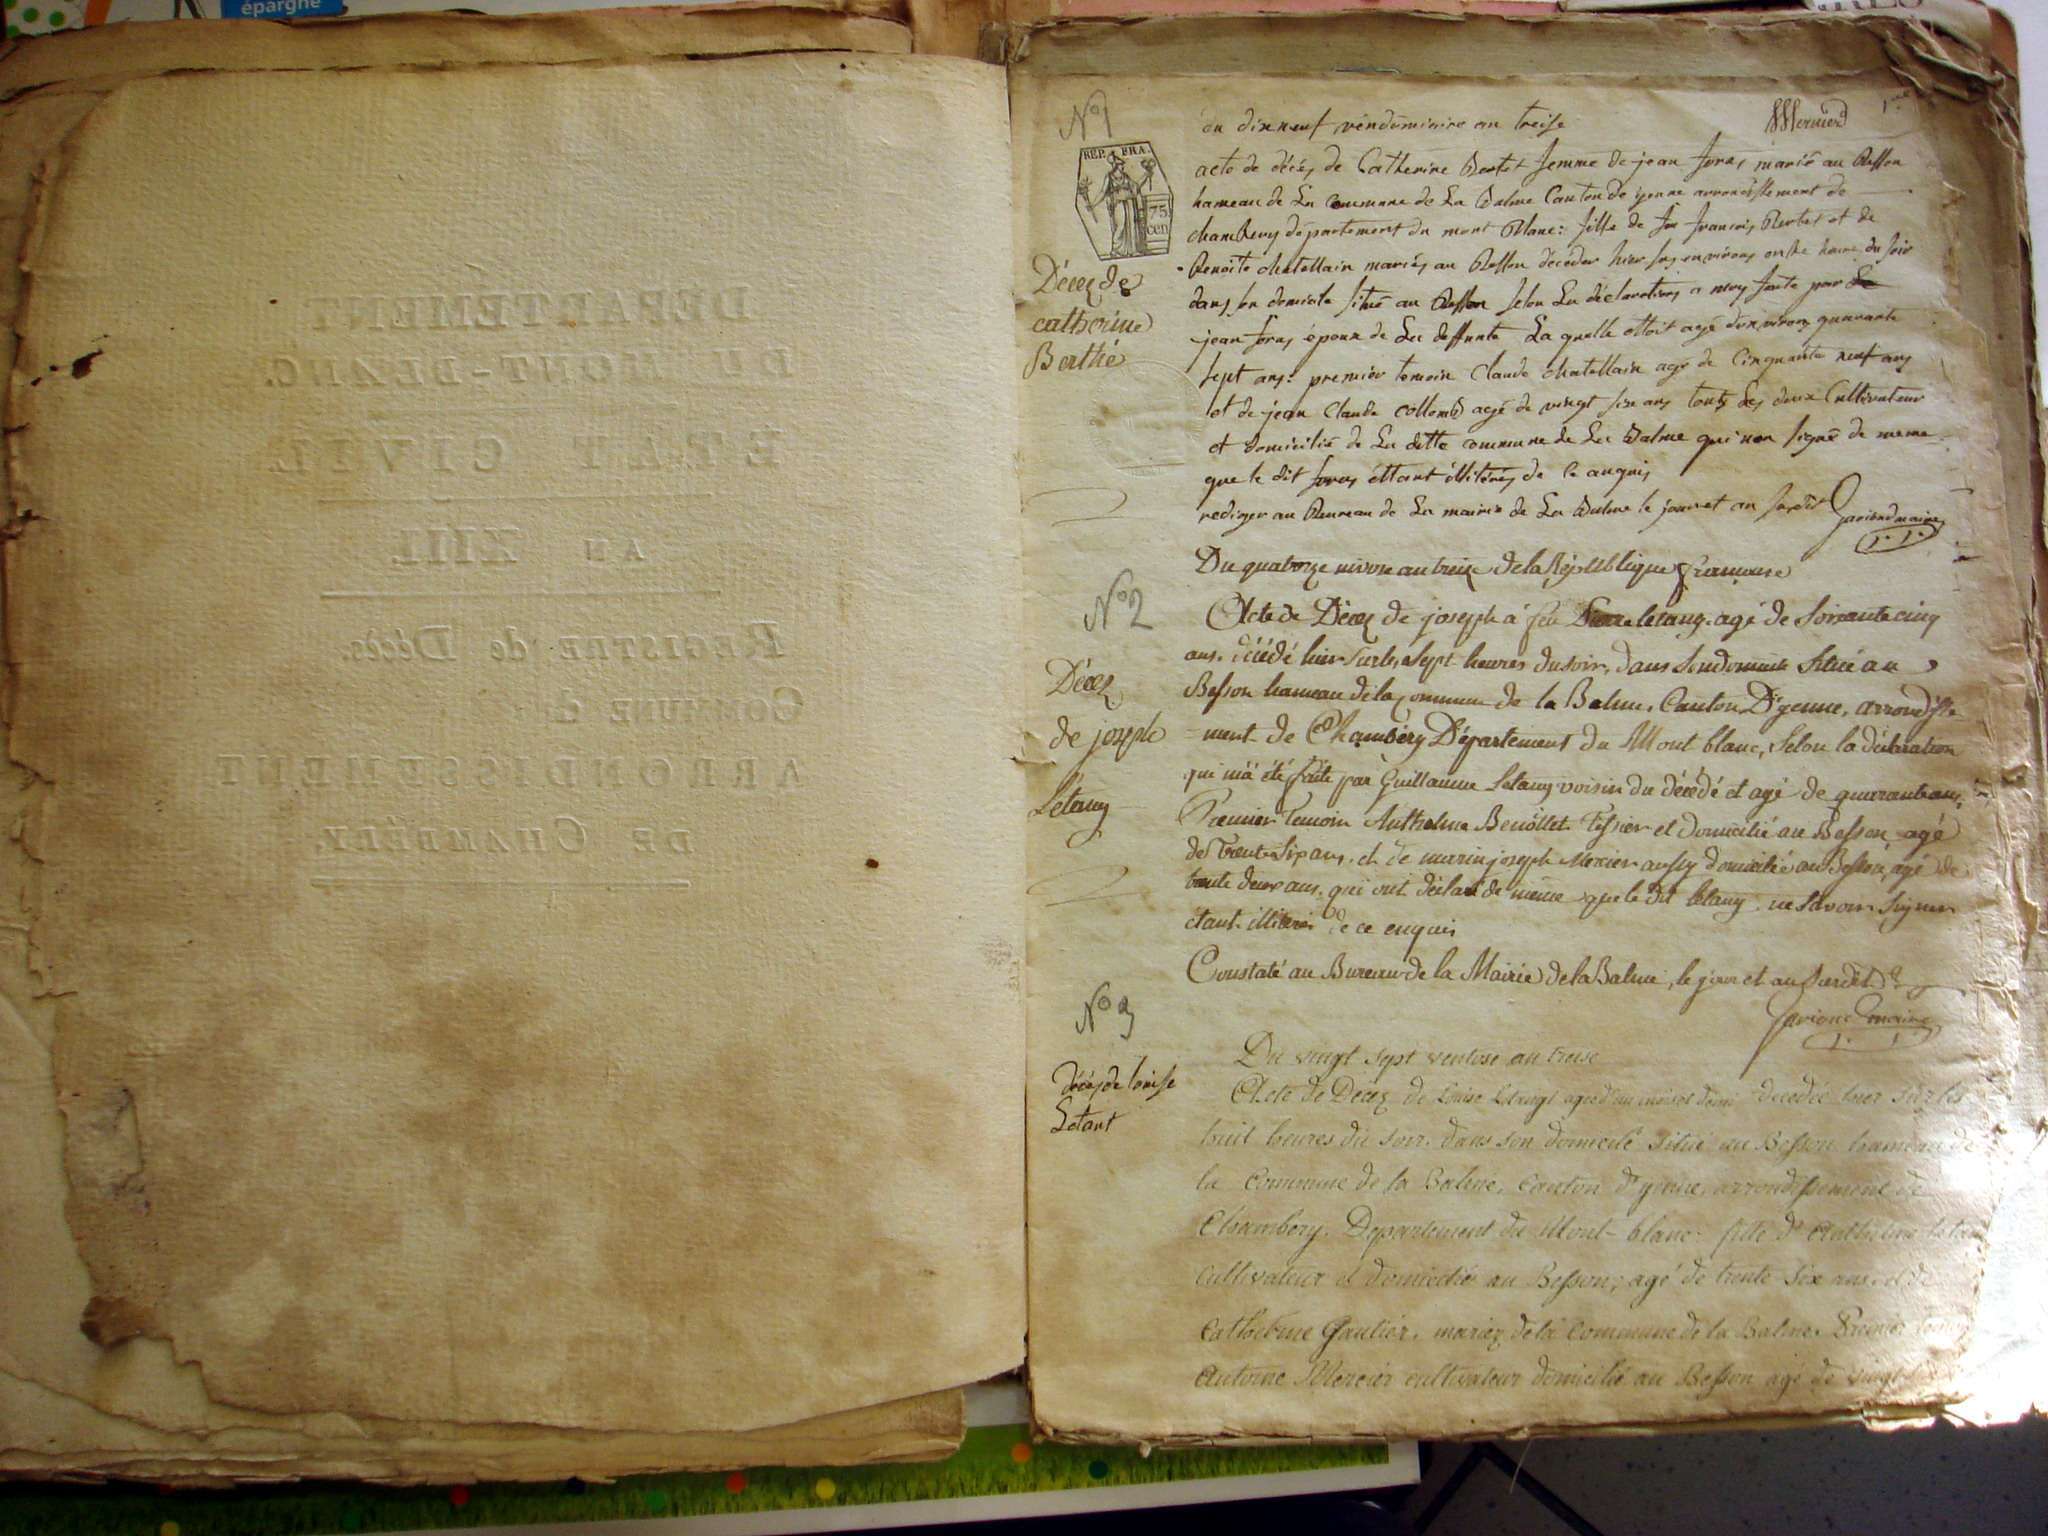 épargne
DÉPARTEMENT
DU MONT-BLANC.
ÉTAT CIVIL
AN XIII.
REGISTRE de Décès.
COMMUNE d
ARRONDISSEMENT
DE CHAMBÉRY.
N° 1
REP. FRA.
75 cen
Décez de
catherine
Berthé
1er
du dixneuf vendémiaire an treise
acte de décés de Catherine Bertet femme de jean foras marié au Besson
hameau de La Commune de La Balme Canton de yenne arrondissement de
chambery département du mont Blanc: fille de feu francois Bertet et de
Benoite chatellain mariés au Besson décéder hier sur environs onze heure du soir
dans son domicile situé au Besson selon La déclaration a moy faite par
jean foras époux de La deffunte La quelle ettoit agé d'environ quarante
sept ans: premier temoin Claude chatellain agé de Cinquante neuf ans
et de jean Claude Collomb agé de vingt six ans touts Les deux Cultivateur
et domicilié de La ditte commune de La Balme qui non signé de meme
que le dit foras éttant illitérés de ce anquis
rediger au Bureau de La mairie de La Balme le jour et an susdit
maire
N° 2
Décez
de joseph
Létang
Du quatorze nivose an treize de la République française
Acte de Décez de joseph à feu letang. agé de Soixante cinq
ans. décédé hier sur les sept heures du soir, dans son domicile situé au
Besson hameau de la Commune de la Balme, Canton D'yenne, arrondisse
-ment de Chambéry Département du Mont blanc, selon la déclaration
qui m'a été faite par Guillaume Letang voisin du décédé et agé de quarante ans,
Premier Temoin Anthelme Benoîllet Tissier et domicilié au Besson agé
de Trente Six ans. et de marin joseph Mercier aussy domicilié au Besson, agé de
trente deux ans. qui ont déclaré de même que le dit letang ne savoir signer
étant illiterés de ce enquis
Constaté au Bureau de la Mairie de la Balme, le jour et an susdit
maire
N° 3
décés de louise
Letant
Du vingt sept ventose an treise
Acte de Décez de Louise Letang agée d'un mois et demi décédée hier sur les
huit heures du soir. dans son domicile situé au Besson hameau de
la Commune de la Balme, Canton d'yenne, arrondissement de
Chambery. Departement du Mont-blanc: fille d'Anthelme
Cultivateur et domicilié au Besson, agé de trente six ans. et de
Catherine Gautier. mariez de la Commune de la Balme. Premier
Antoine Mercier cultivateur domicilié au Besson agé de vingt